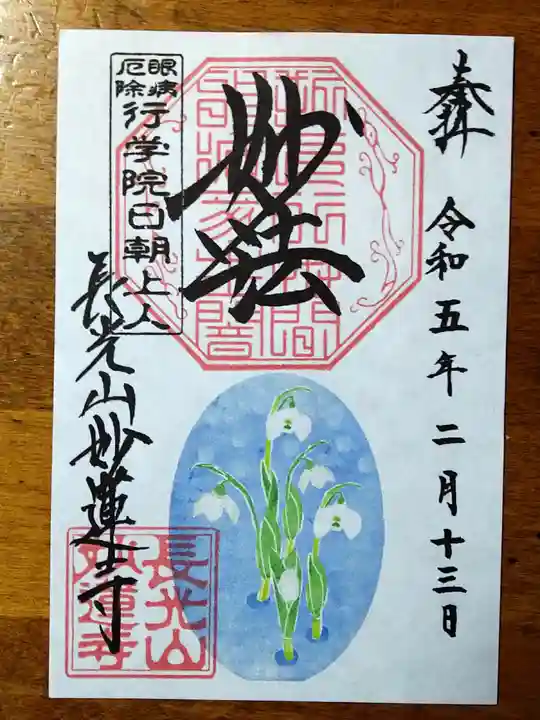 奉拝
令和五年二月十三日
妙法
眼病
厄除
行学院日朝上人
長光山妙蓮寺
長光山
妙蓮寺